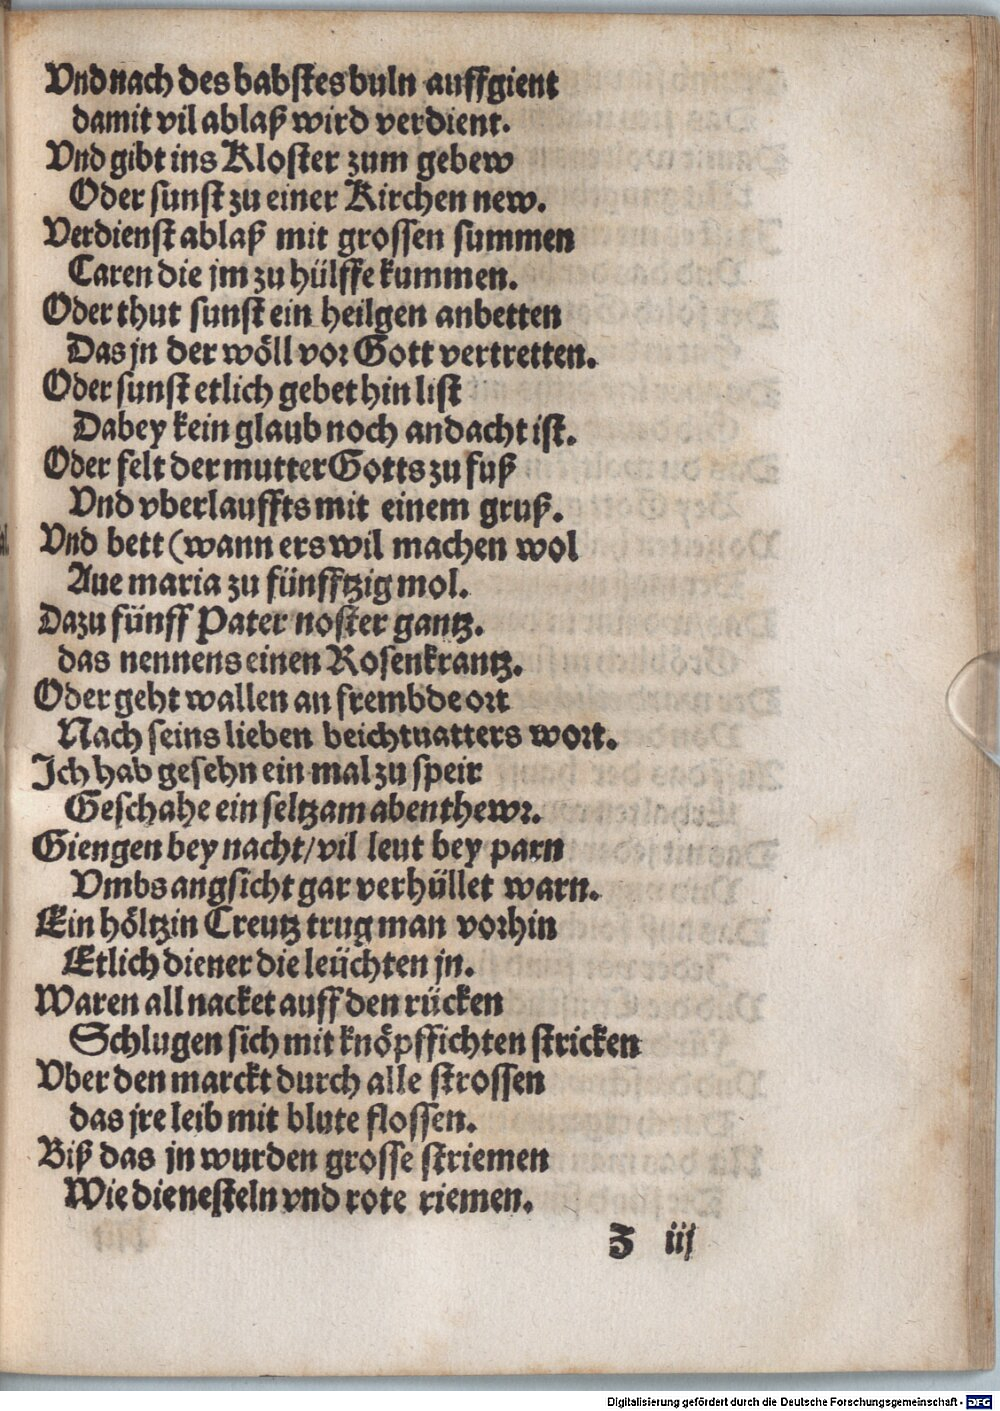 Vnd nach des babstes buln auffgient
damit vil ablaß wird verdient.
Vnd gibt ins Kloster zum gebew
Oder sunst zu einer Kirchen new.
Verdienst ablaß mit grossen summen
Caren die jm zu hülffe kummen.
Oder thut sunst ein heilgen anbetten
Das jn der wöll vor Gott vertretten.
Oder sunst etlich gebet hin list
Dabey kein glaub noch andacht ist.
Oder felt der mutter Gotts zu fuß
Vnd vberlauffts mit einem gruß.
Vnd bett (wann ers wil machen wol
Aue maria zu fünfftzig mol.
Dazu fünff Pater noster gantz.
das nennens einen Rosenkrantz.
Oder geht wallen an frembde ort
Nach seins lieben beichtuatters wort.
Ich hab gesehn ein mal zu speir
Geschahe ein seltzam abenthewr.
Giengen bey nacht/vil leut bey parn
Vmbs angsicht gar verhüllet warn.
Ein höltzin Creutz trug man vorhin
Etlich diener die leüchten jn.
Waren all nacket auff den rücken
Schlugen sich mit knöpffichten stricken
Vber den marckt durch alle strossen
das jre leib mit blute flossen.
Biß das jn wurden grosse striemen
Wie die nesteln vnd rote riemen.
Z iij
Digitalisierung gefördert durch die Deutsche Forschungsgemeinschaft - DFG